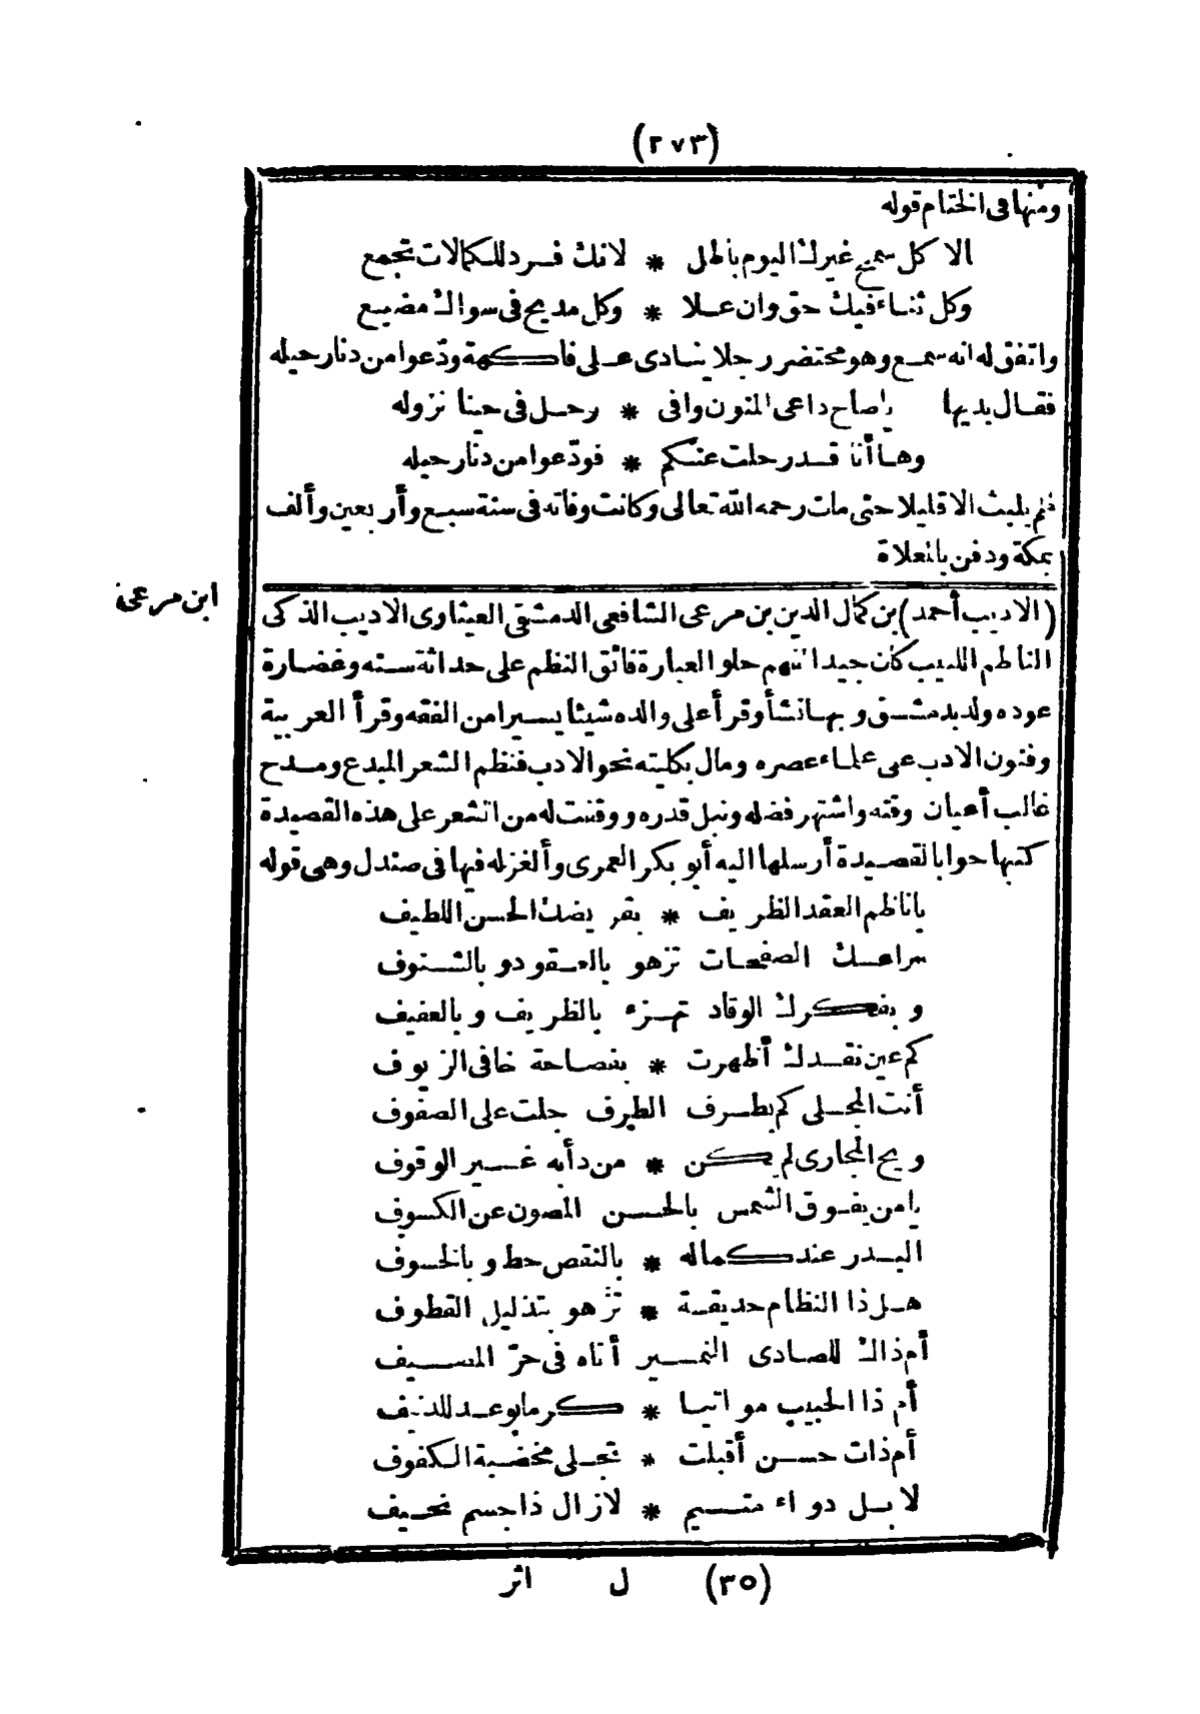 (٢٧٣)
ومنها فى الختام قوله
الا كل سمع غيرك اليوم باطل * لانك فرد للكمالات تجمع
وكل ثناء فيك حق وان علا * وكل مديح فى سواك مضيع
واتفق له انه سمع وهو محتضر رجلا ينادى على فاكهة ودّعوا من دنا رحيله
فقال بديها ياصاح داعى المنون وافى * رحل فى حينا نزوله
وها أنا قد رحلت عنكم * فودّعوا من دنا رحيله
فلم يلبث الا قليلا حتى مات رحمه الله تعالى وكانت وفاته فى سنة سبع وأربعين وألف
بمكة ودفن بالمعلاة
ابن مرعى
(الاديب أحمد) بن كمال الدين بن مرعى الشافعى الدمشقى العيثاوى الاديب الذكى
الناظم اللبيب كان جيد الفهم حلو العبارة فائق النظم على حداثة سنه وغضارة
عوده ولد بدمشق وبها نشأ وقرأ على والده شيئا يسيرا من الفقه وقرأ العربية
وفنون الادب على علماء عصره ومال بكليته نحو الادب فنظم الشعر المبدع ومدح
غالب أعيان وقته واشتهر فضله ونبل قدره ووقفت له من الشعر على هذه القصيدة
كتبها جوابا لقصيدة أرسلها اليه أبو بكر العمرى وألغز له فيها فى صندل وهى قوله
يا ناظم العقد الظريف * بقريضك الحسن اللطيف
الصفحات تزهو بالعقود وبالشنوف
وبفكرك الوقاد تهزء بالظريف وبالعفيف
كم عين نقدك أظهرت * بفصاحة خافى الزيوف
أنت المجلى كم بطرف الطرف جلت على الصفوف
ويح المجارى لم يكن * من دأبه غير الوقوف
يا من يفوق الشمس بالحسن المصون عن الكسوف
البدر عند كماله * بالنقص حط وبالخسوف
هل ذا النظام حديقة * تزهو بتذليل القطوف
أم ذاك للصادى النمير أتاه فى حرّ المصيف
أم ذا الحبيب مواتيا * كرما بوعد للدنيف
أم ذات حسن أقبلت * تجلى مخضبة الكفوف
لا بل دواء متيم * لازال ذا جسم نحيف
(٣٥) ل اثر